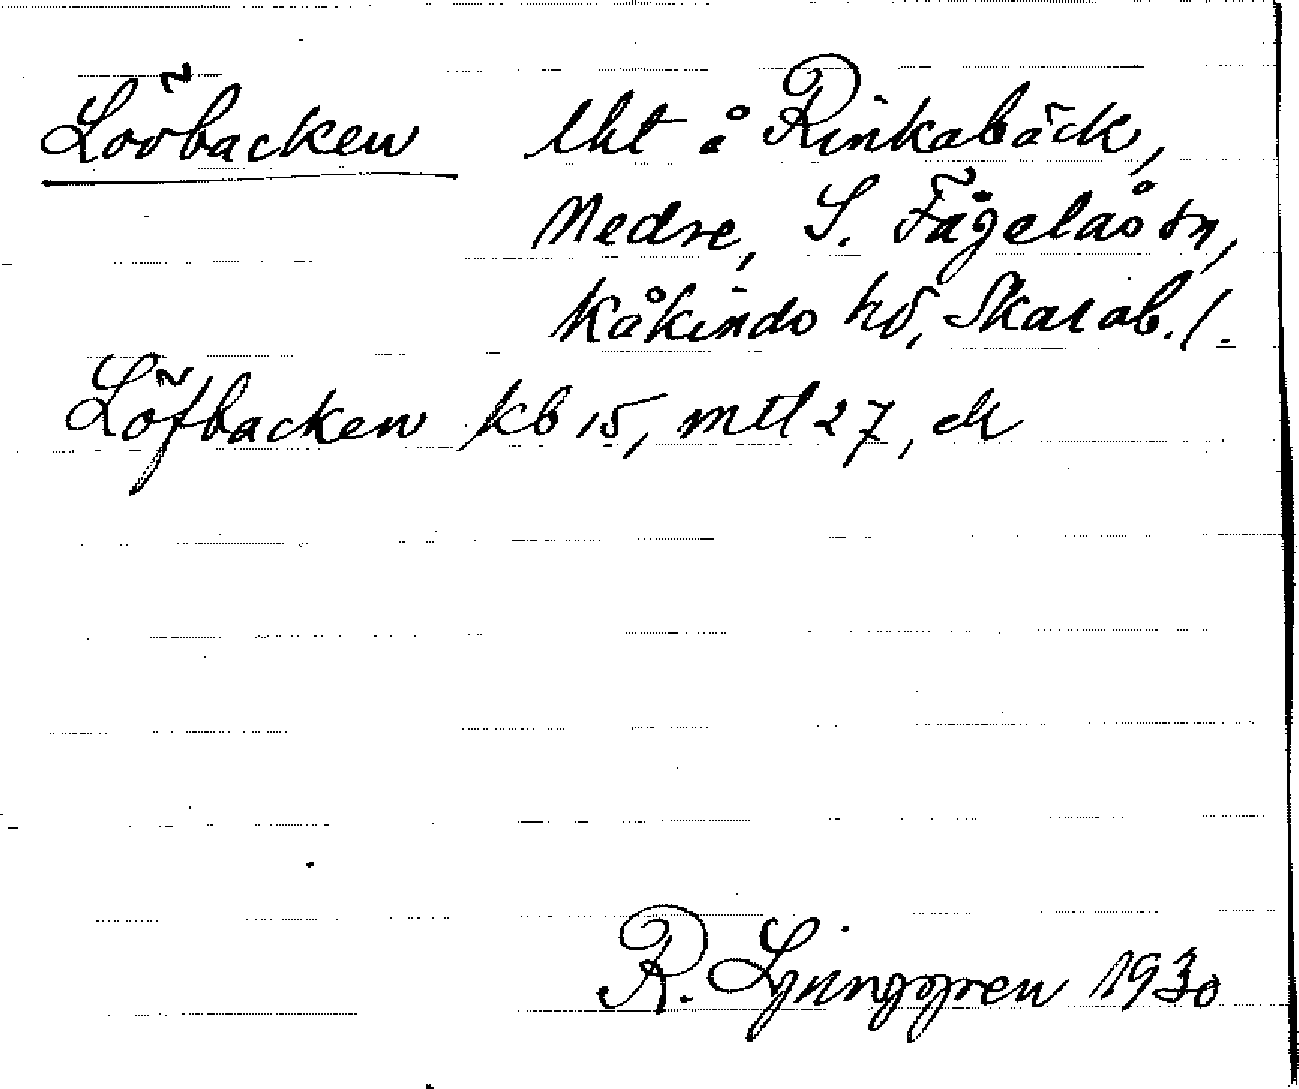 Lövbacken lht å Rinkabäck,
Nedre, S. Fågelås sn,
Kåkinds hd, Skarab. l.
Löfbacken kb 15, mtl 27, ek
R. Ljunggren 1930